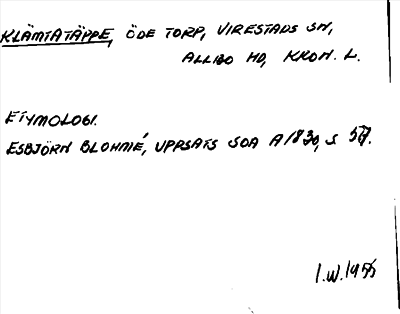 KLÄMTATÄPPE, ÖDE TORP, VIRESTADS SN,
ALLBO HD, KRON. L.
ETYMOLOGI.
ESBJÖRN BLOHMÉ, UPPSATS SOA A1830, S 57.
I.W. 1955